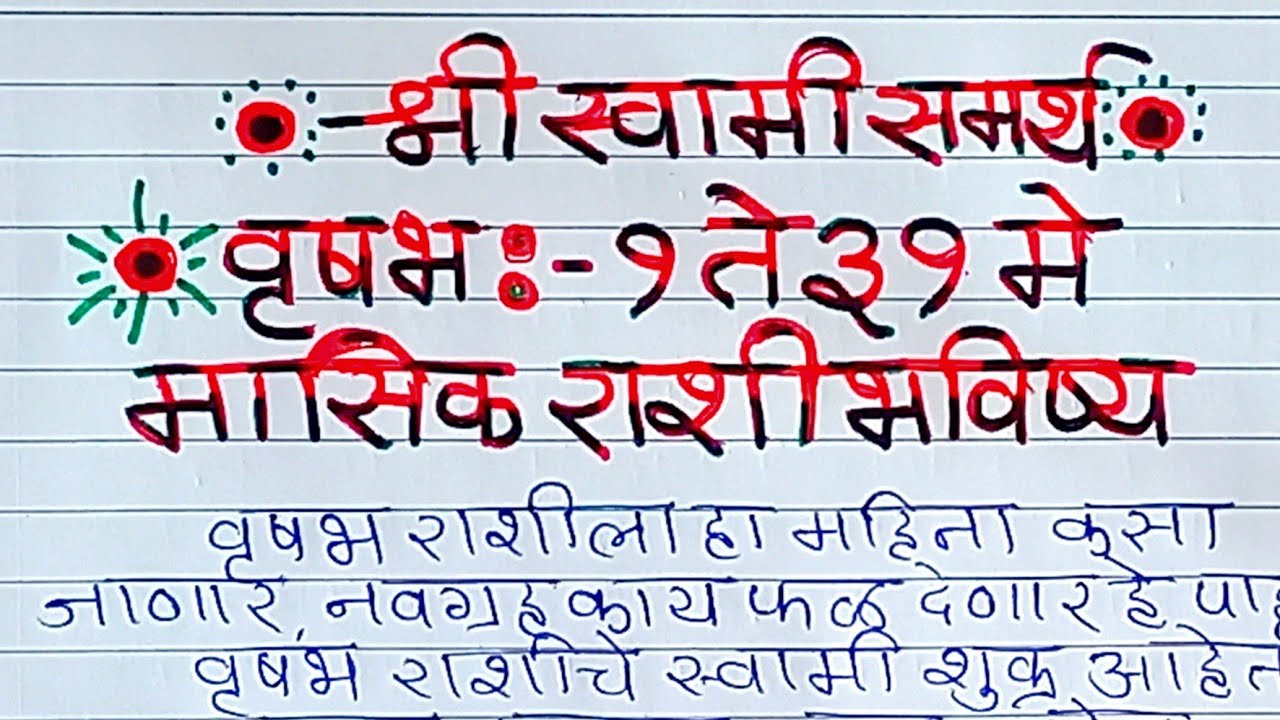 श्री स्वामी समर्थ
वृषभ :- १ ते ३१ मे
मासिक राशी भविष्य
वृषभ राशीला हा महिना कसा
जाणार, नवग्रह काय फळ देणार हे
वृषभ राशीचे स्वामी शुक्र आहेत